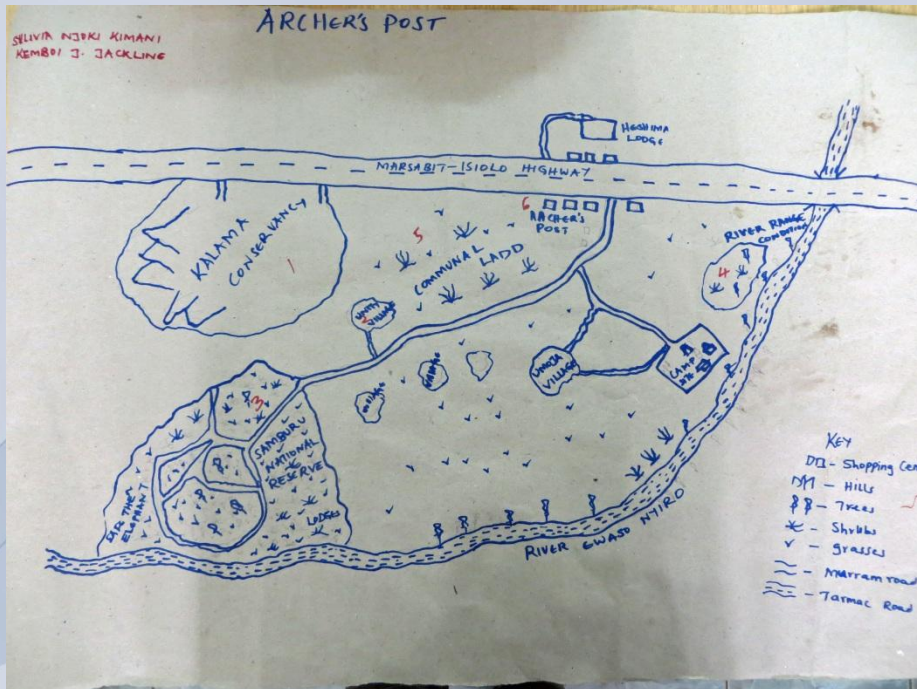 ARCHER'S POST
SYLIVIA NJOKI KIMANI
KEMBOI J. JACKLINE
HESHIMA
LODGE
MARSABIT-ISIOLO HIGHWAY
6
ARCHER'S
POST
KALAMA
CONSERVANCY
1
5
COMMUNAL LADD
RIVER RANGE
CONDITION
4
UNITY
VILLAGE
2
VILLAGE
UMOJA
VILLAGE
CAMP
3
SAMBURU
NATIONAL
RESERVE
LODGES
SAVE THE
ELEPHANT
RIVER GWASO NYIRO
KEY
- Shopping Cen
- Hills
- Trees
- Shrubs
- grasses
- Marram road
- Tarmac Road